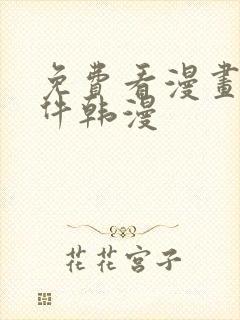 免費看漫畫
件韩漫
花花宫子